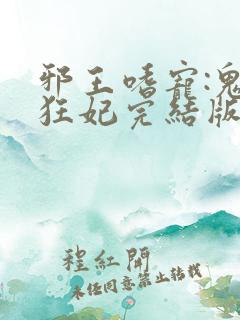 邪王嗜寵:鬼
狂妃完結版
程紅開
未任同意禁止轉載